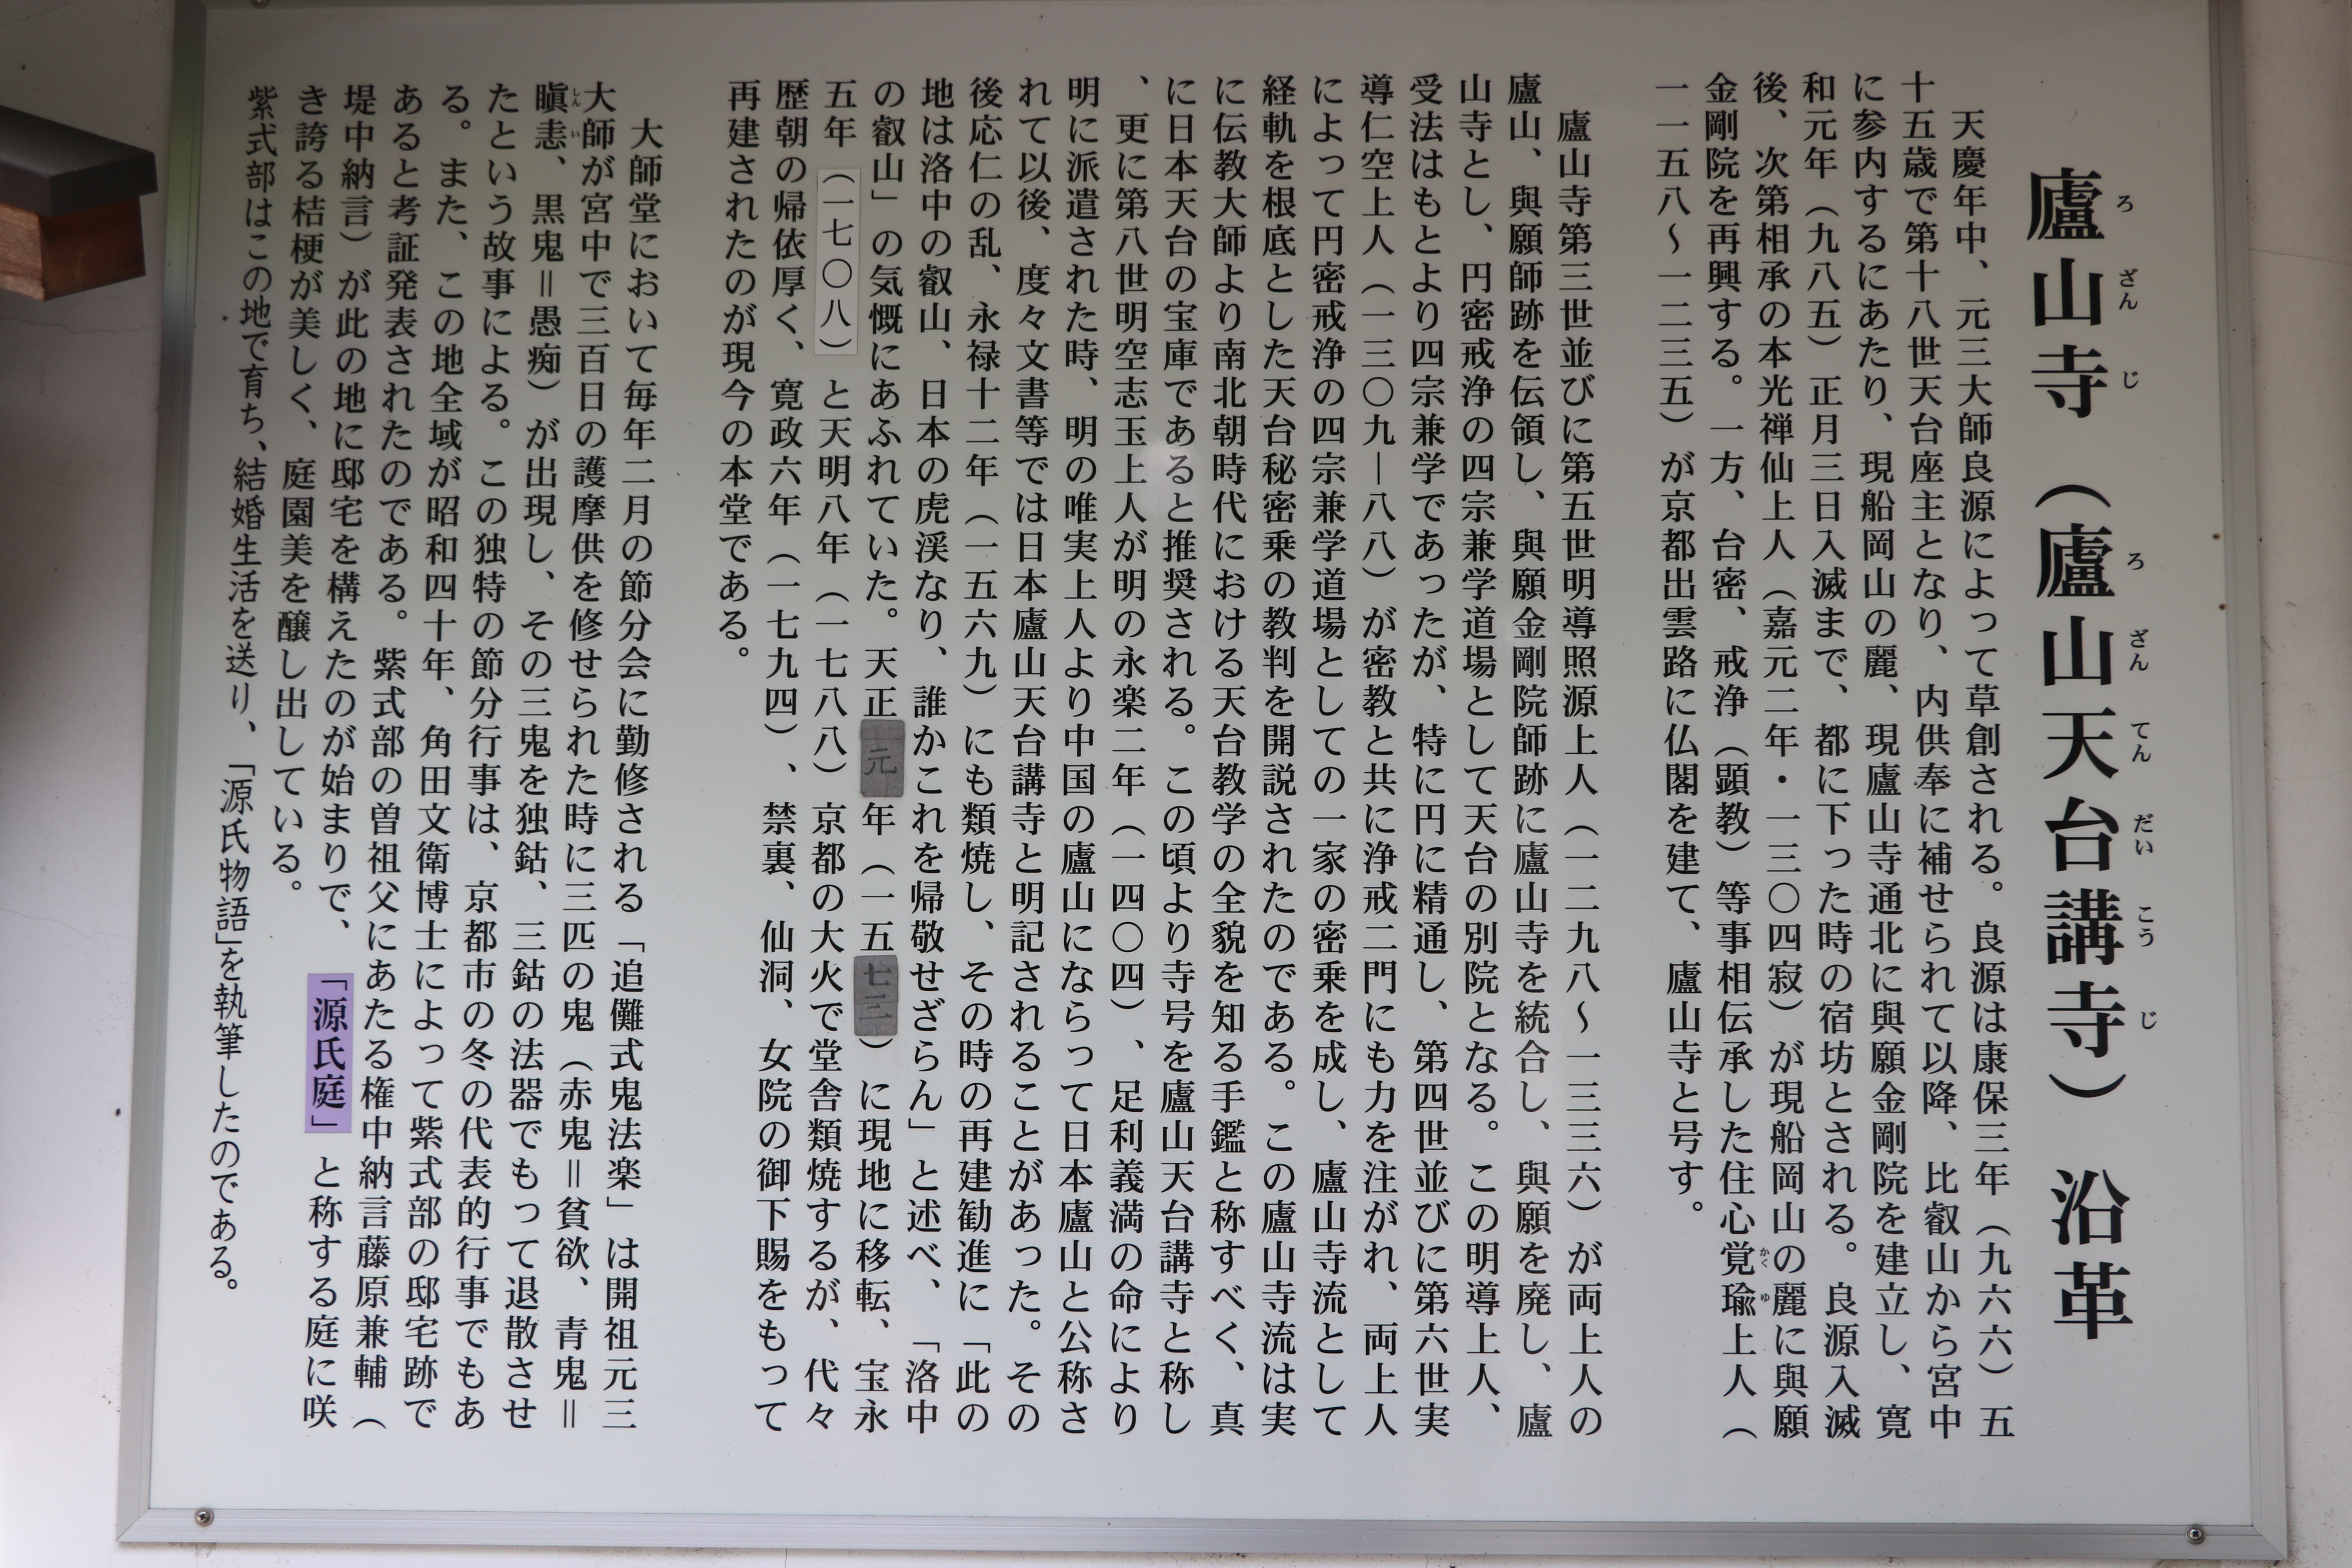 廬山寺（廬山天台講寺）沿革
ろざんじ ろざんてんだいこうじ
天慶年中、元三大師良源によって草創される。良源は康保三年（九六六）五
十五歳で第十八世天台座主となり、内供奉に補せられて以降、比叡山から宮中
に参内するにあたり、現船岡山の麗、現廬山寺通北に與願金剛院を建立し、寛
和元年（九八五）正月三日入滅まで、都に下った時の宿坊とされる。良源入滅
後、次第相承の本光禅仙上人（嘉元二年・一三〇四寂）が現船岡山の麗に與願
金剛院を再興する。一方、台密、戒浄（顕教）等事相伝承した住心覚瑜上人（
かくゆ
一一五八〜一二三五）が京都出雲路に仏閣を建て、廬山寺と号す。
廬山寺第三世並びに第五世明導照源上人（一二九八〜一三三六）が両上人の
廬山、與願師跡を伝領し、與願金剛院師跡に廬山寺を統合し、與願を廃し、廬
山寺とし、円密戒浄の四宗兼学道場として天台の別院となる。この明導上人、
受法はもとより四宗兼学であったが、特に円に精通し、第四世並びに第六世実
導仁空上人（一三〇九―八八）が密教と共に浄戒二門にも力を注がれ、両上人
によって円密戒浄の四宗兼学道場としての一家の密乗を成し、廬山寺流として
経軌を根底とした天台秘密乗の教判を開説されたのである。この廬山寺流は実
に伝教大師より南北朝時代における天台教学の全貌を知る手鑑と称すべく、真
に日本天台の宝庫であると推奨される。この頃より寺号を廬山天台講寺と称し
、更に第八世明空志玉上人が明の永楽二年（一四〇四）、足利義満の命により
明に派遣された時、明の唯実上人より中国の廬山にならって日本廬山と公称さ
れて以後、度々文書等では日本廬山天台講寺と明記されることがあった。その
後応仁の乱、永禄十二年（一五六九）にも類焼し、その時の再建勧進に「此の
地は洛中の叡山、日本の虎渓なり、誰かこれを帰敬せざらん」と述べ、「洛中
の叡山」の気慨にあふれていた。天正元年（一五七三）に現地に移転、宝永
五年（一七〇八）と天明八年（一七八八）京都の大火で堂舎類焼するが、代々
歴朝の帰依厚く、寛政六年（一七九四）、禁裏、仙洞、女院の御下賜をもって
再建されたのが現今の本堂である。
大師堂において毎年二月の節分会に勤修される「追儺式鬼法楽」は開祖元三
大師が宮中で三百日の護摩供を修せられた時に三匹の鬼（赤鬼＝貧欲、青鬼＝
瞋恚、黒鬼＝愚痴）が出現し、その三鬼を独鈷、三鈷の法器でもって退散させ
しんい
たという故事による。この独特の節分行事は、京都市の冬の代表的行事でもあ
る。また、この地全域が昭和四十年、角田文衛博士によって紫式部の邸宅跡で
あると考証発表されたのである。紫式部の曽祖父にあたる権中納言藤原兼輔（
堤中納言）が此の地に邸宅を構えたのが始まりで、「源氏庭」と称する庭に咲
き誇る桔梗が美しく、庭園美を醸し出している。
紫式部はこの地で育ち、結婚生活を送り、「源氏物語」を執筆したのである。